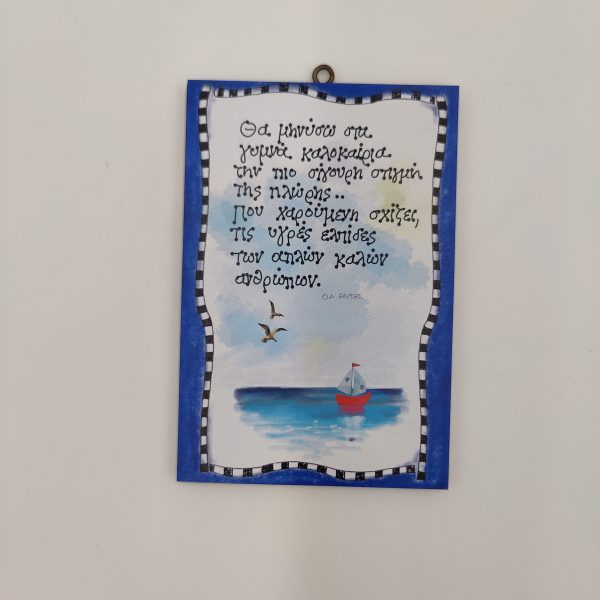 Θα μηνύσω στα
γυμνά καλοκαίρια
την πιο σίγουρη στιγμή
της πλώρης..
Που χαρούμενη σχίζει,
τις υγρές ελπίδες
των απλών καλών
ανθρώπων.
ΟΔ. ΕΛΥΤΗΣ